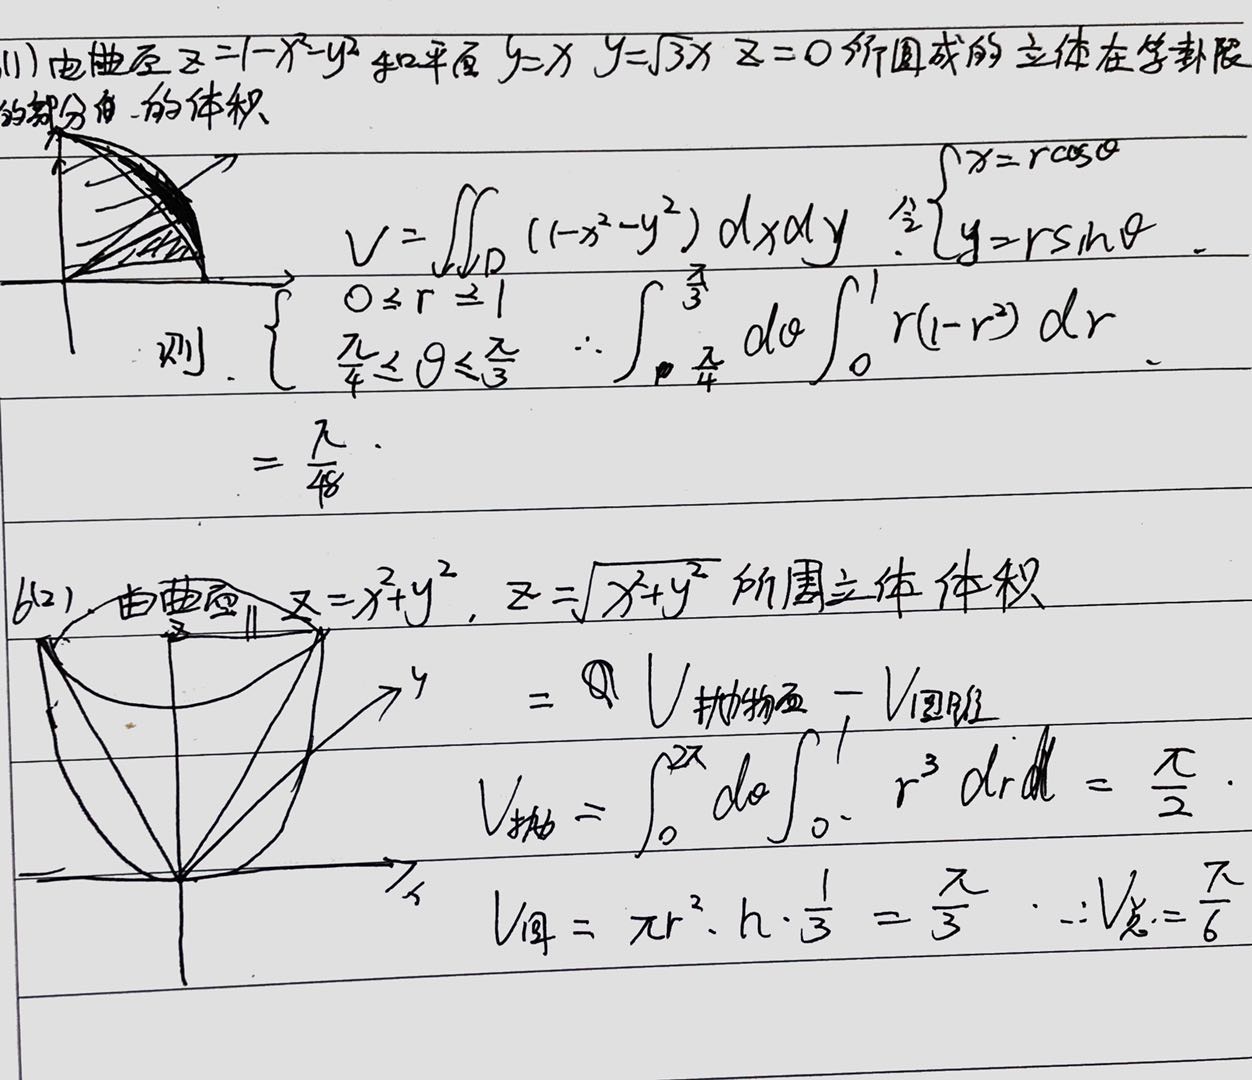 (1) 由曲面 z=1-x²-y² 和平面 y=x y=√3x z=0 所围成的立体在第一卦限
的部分的体积
V=∬_D (1-x²-y²) dxdy . 令 { x=rcosθ y=rsinθ .
则 . { 0≤r≤1 π/4≤θ≤π/3 ∴ ∫_{π/4}^{π/3} dθ ∫_0^1 r(1-r²) dr .
= π/48 .
6(2). 由曲面 z=x²+y², z=√(x²+y²) 所围立体体积
z
y
= V抛物面 - V圆锥
V抛 = ∫_0^{2π} dθ ∫_0^1 r³ dr = π/2 .
x
V圆 = πr²·h·1/3 = π/3 . ∴V总.=π/6